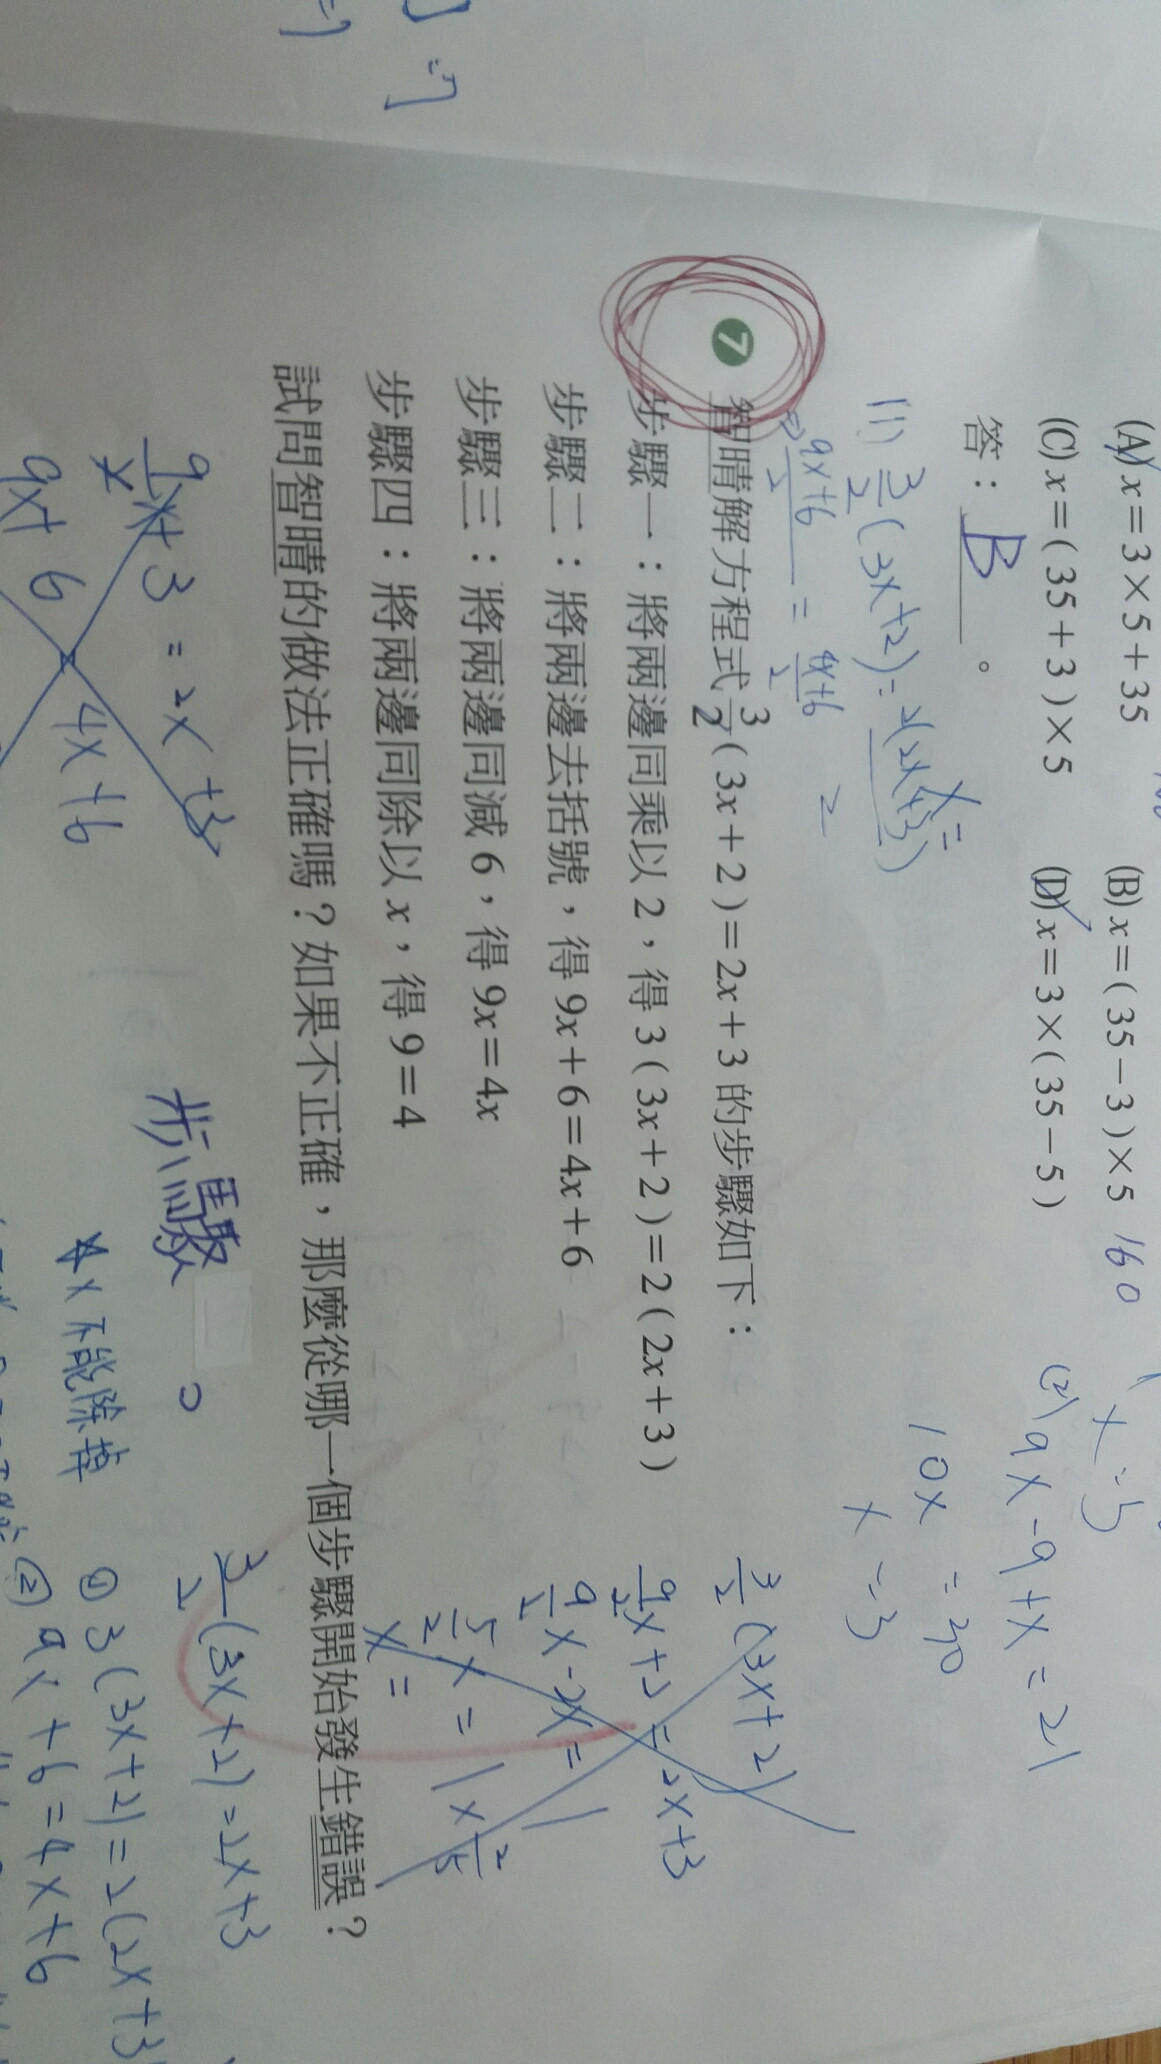 (A) x=3×5+35
(B) x=(35-3)×5 160
(C) x=(35+3)×5
(D) x=3×(35-5)
答：B。
7 智晴解方程式 3/2(3x+2)=2x+3 的步驟如下：
步驟一：將兩邊同乘以2，得3(3x+2)=2(2x+3)
步驟二：將兩邊去括號，得9x+6=4x+6
步驟三：將兩邊同減6，得9x=4x
步驟四：將兩邊同除以x，得9=4
試問智晴的做法正確嗎？如果不正確，那麼從哪一個步驟開始發生錯誤？
(1) 3/2(3x+2)=2(2x+3)/2
x=
⇒ 9x+6/2 = 4x+6/2
(2) 9x-9+x=21
10x =30
x=3
3/2(3x+2)
9/2x+3=2x+3
5/2x=1×2/5
x=
3 = 2x+3
9x+6 4x+6
步驟
x不能除掉
3/2(3x+2)=2x+3
① 3(3x+2)=2(2x+3
② 9x+6=4x+6